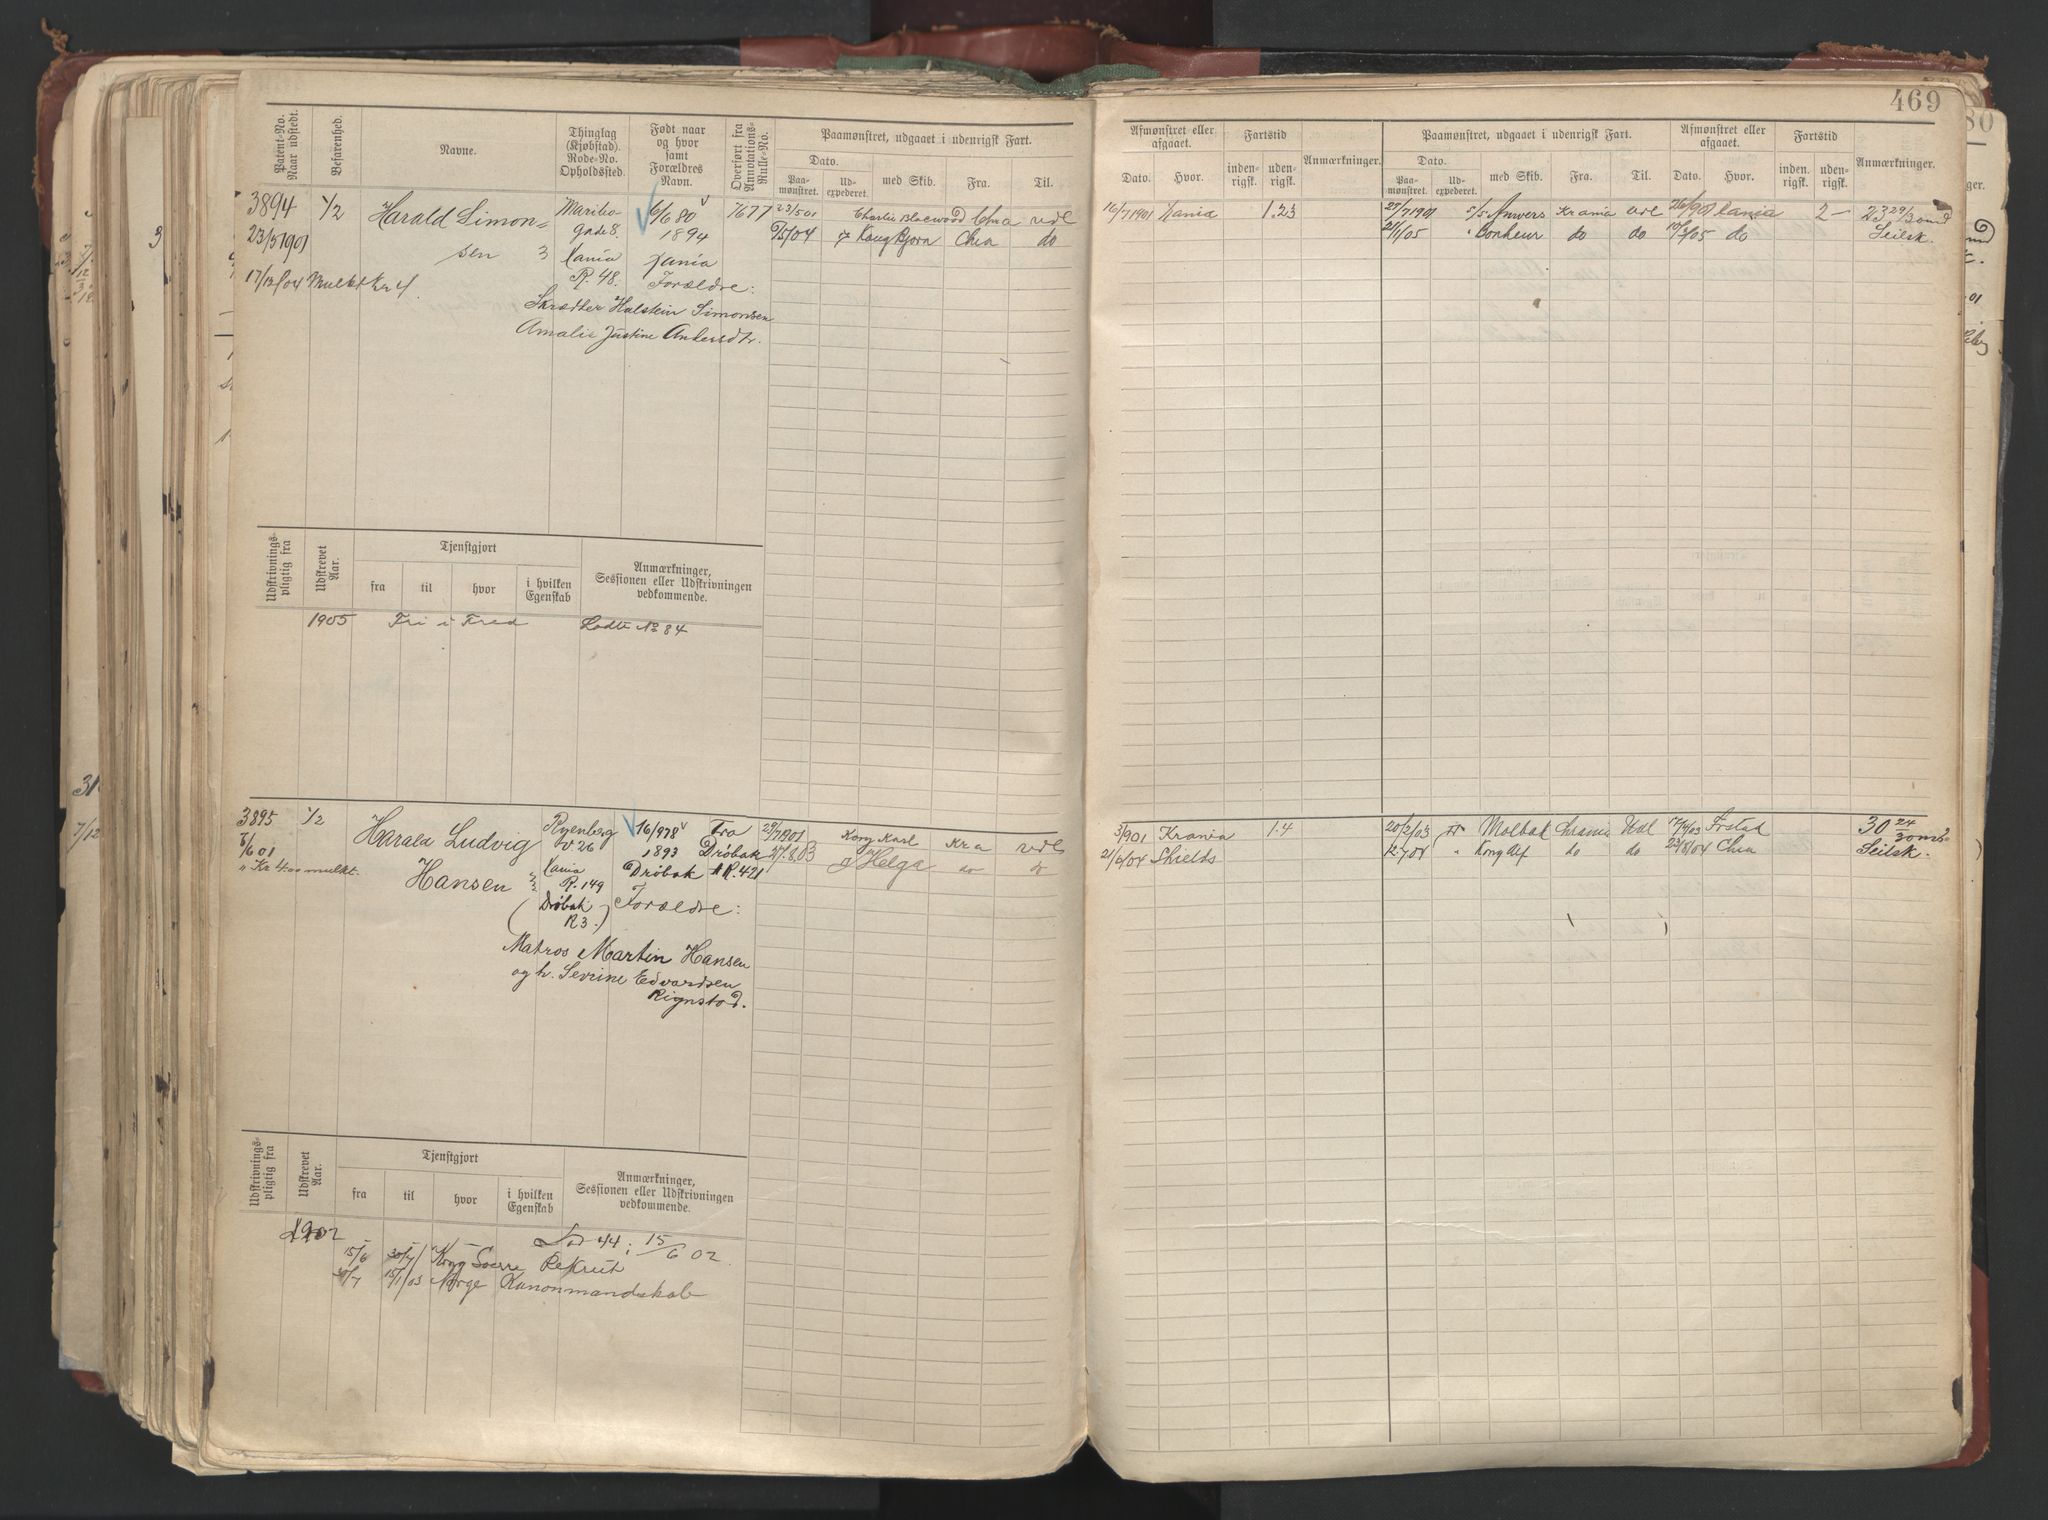 469
Patent-No. Naar udstedt.
Befarenhed.
Navne.
Thinglag (Kjøbstad). Rode-No. Opholdssted.
Født naar og hvor samt Forældres Navn.
Overført fra Annotations-Rulle-No.
Paamønstret, udgaaet i udenrigsk Fart.
Dato.
Paamønstret.
Udexpederet.
med Skib.
Fra.
Til.
Afmønstret eller afgaaet.
Dato.
Hvor.
Fartstid
indenrigsk.
udenrigsk.
Anmærkninger.
Paamønstret, udgaaet i udenrigsk Fart.
Dato.
Paamønstret.
Udexpederet.
med Skib.
Fra.
Til.
Afmønstret eller afgaaet.
Dato.
Hvor.
Fartstid
inden. rigsk.
udenrigsk.
Anmærkninger.
3894 1/2 Harald Simon= Maribo- 6/6 80 7677 23/5 01 Charlie Bacwood Chra udl
23/5 1901 gade 8. 1894 2/5 04 Kong Bjørn Chra do
sen 3 Xania Xania
17/12 04 Mulkt kr 4 R. 48. Forældre:
Skrædder Halstein Simonsen
Amalie Justine Andersdtr.
16/7 1901 Xania 1.23
27/7 1901 S/S Anvers Krania udl Xania 2 - 23 29/30 md
2/1/05 Bonheur do do 19/2/05 do Seilsk.
Udskrivnings-pligtig fra
Udskrevet Aar.
Tjenstgjort
fra
til
hvor
i hvilken Egenskab
Anmærkninger, Sessionen eller Udskrivningen vedkommende.
1905 Fri i Fred Lodtr No 84
3895 1/2 Harald Ludvig Ryenberg 16/9 78 Fra 29/7 1901 Kong Karl Kra udl
6/6 01 V 26 1893 Drøbak 27.8.03 Helga do d
" Kr 4.00 mulkt. Hansen Xania Drøbak AR. 421
R. 149
(Drøbak Forældre:
R 3.)
Matros Martin Hansen
og h. Sevrine Edvardsen
Rignstod.
3/901 Krania 1.4
21/6/04 Shields
20/2/03 Molbak Chrania Udl 17/4/03 30 24/30 mdr
12/7 04 " Kong Alf do do 23/8/04 Chra Seilsk.
Udskrivnings-pligtig fra
Udskrevet Aar.
Tjenstgjort
fra
til
hvor
i hvilken Egenskab
Anmærkninger, Sessionen eller Udskrivningen vedkommende.
1902 Lod 44 i 15/6 02.
15/6 30/7 Kong Sverre Rekrut
30/7 15/1/03 Norge Kanonmandskab